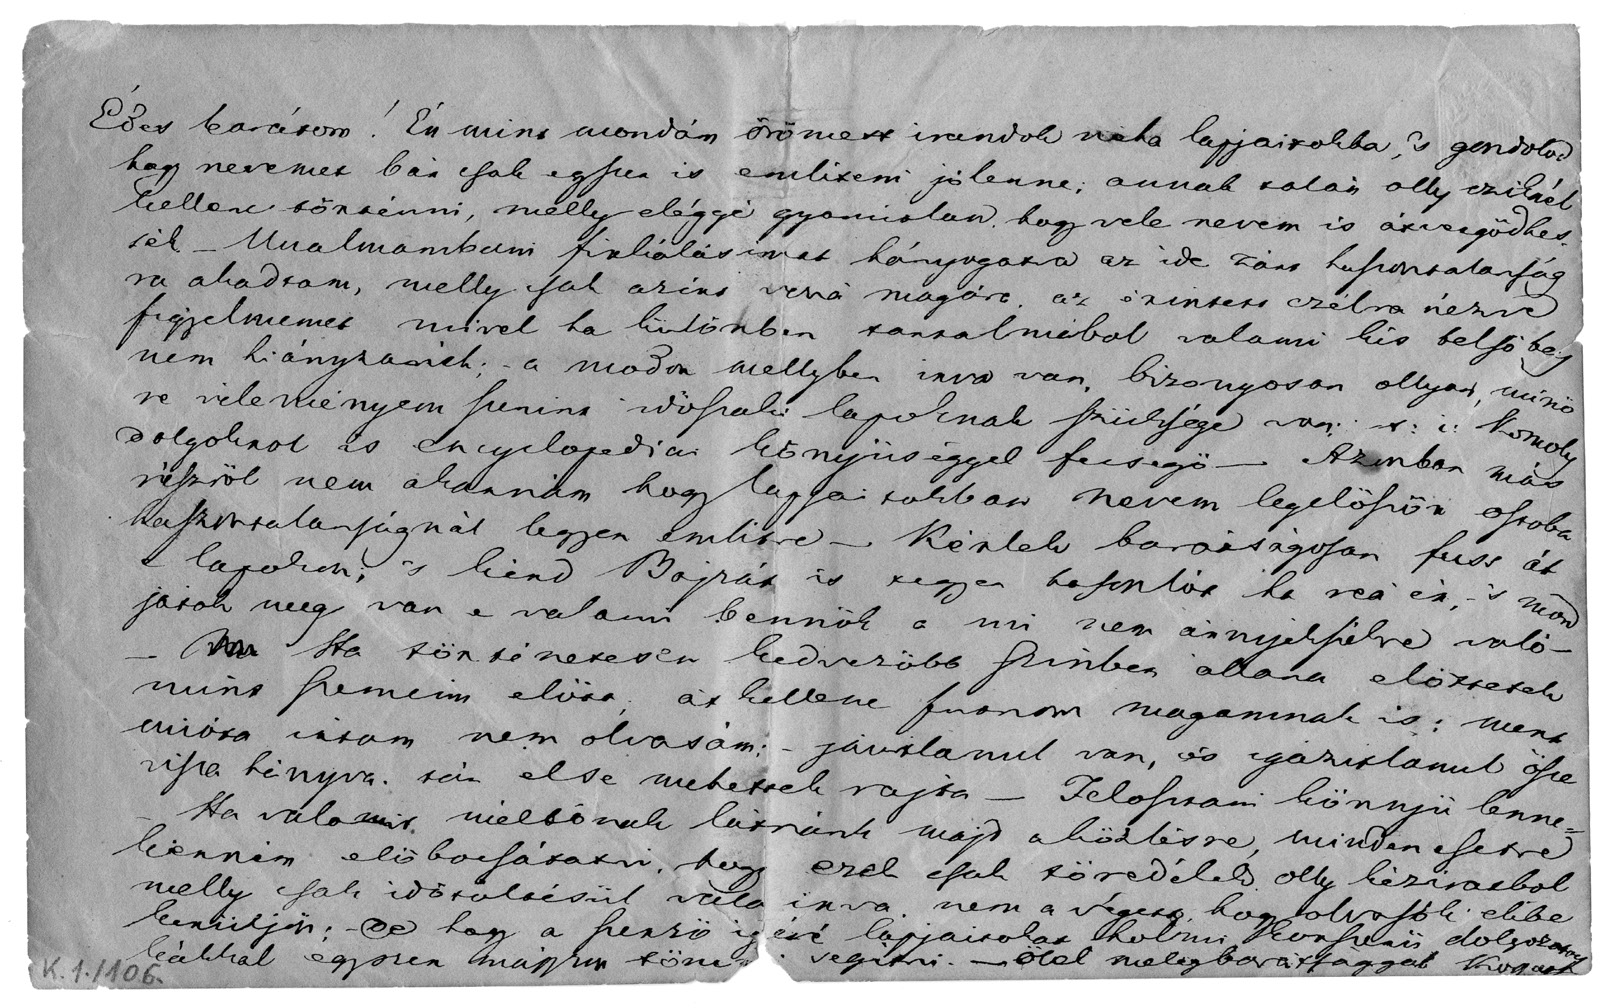 Édes barátom! Én mint mondám örömest irandok néha lapjaitokba, 's gondolod
hogy nevemet bár csak egyszer is emliteni jó lenne; annak talán olly czikknél
kellene történni, melly eléggé gyomistan hogy vele nevem is átvergődhes-
sék – Munkáim firkálásimat hányogatva az ide zárt haszontalanság
ra akadtam, melly csak azért voná magára az érintett czélra nézve
figyelmemet mivel ha különben tartalmából valami kis belső becs
nem hiányzanék; - a modor mellyben irva van, bizonyosan ollyan, minő
re véleményem szerint időszaki lapoknak szüksége van; t: i: komoly
dolgokrol is encyclopediai könnyüséggel fecsegő – Azonban más
részről nem akarnám hogy lapjaitokban nevem legelőször ostoba
haszontalanságnál legyen emlitve – Kérlek barátságosan fuss át
e lapokon; 's kérd Bajzát is tegyen hasonlót ha reá ér, 's mond
játok meg van e valami bennök a mi nem árnyékszékre való –
– Ha történetesen kedvezőbb szinben állana előttetek
mint szemeim előtt, át kellene futnom magamnak is; mert
mióta irtam nem olvasám; - javitlanul van, és igazitlanul össze
vissza hányva. tán else mehettek rajta – Felosztani könnyü lenne –
– Ha valamit méltónak látnánk majd a közlésre, minden esetre
kérném előbocsátatni, hogy ezek csak töredékek olly kéziratbol
melly csak időtöltésül vala irva nem a végett, hogy olvasók elibe
kerüljön; – de hogy a szerző igéré lapjaitokat holmi korszerü dolgozatocs
kákkal egyszer másszor segitni. – ölel meleg barátsággal
K.1./106.